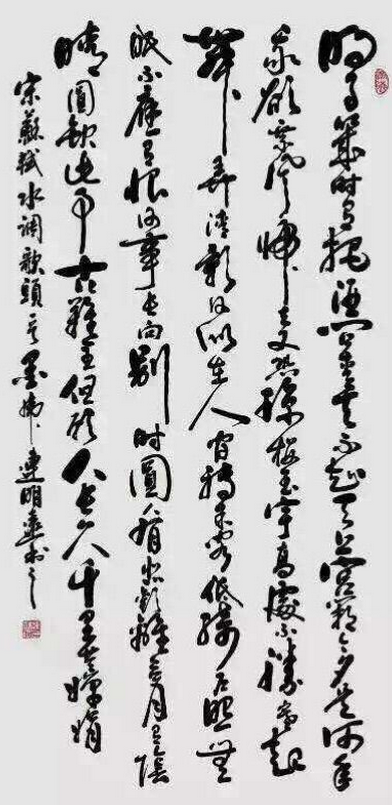 明月幾時有把酒問青天不知天上宮闕今夕是何年
我欲乘風歸去又恐瓊樓玉宇高處不勝寒起
舞弄清影何似在人間轉朱閣低綺戶照無
眠不應有恨何事長向別時圓人有悲歡離合月有陰
晴圓缺此事古難全但願人長久千里共嬋娟
宋蘇軾水調歌頭